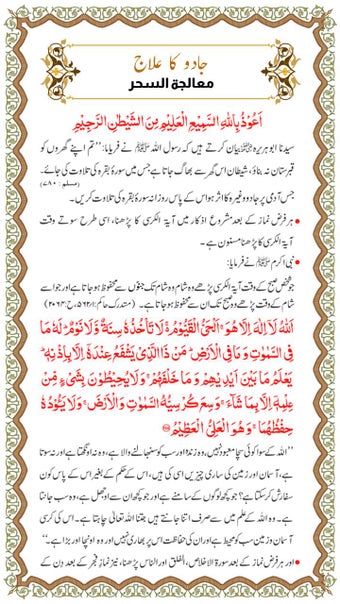 جادو کا علاج
معالجة السحر
اَعُوْذُ بِاللّٰهِ السَّمِيْعِ الْعَلِيْمِ مِنَ الشَّيْطٰنِ الرَّجِيْمِ
سیدنا ابوہریرہ ؓ بیان کرتے ہیں کہ رسول اللہ ﷺ نے فرمایا: ’’تم اپنے گھروں کو
قبرستان نہ بناؤ، شیطان اس گھر سے بھاگ جاتا ہے جس میں سورۂ بقرہ کی تلاوت کی جائے۔
(مسلم: ۷۸۰)
جس آدمی پر جادو وغیرہ کا اثر ہو اس کے پاس روزانہ سورۂ بقرہ کی تلاوت کریں۔
• ہر فرض نماز کے بعد مشروع اذکار میں آیۃ الکرسی کا پڑھنا، اسی طرح سوتے وقت
آیۃ الکرسی کا پڑھنا مسنون ہے۔
• نبی اکرم ﷺ نے فرمایا:
جو شخص صبح کے وقت پڑھے وہ شام تک جنوں سے محفوظ ہو جاتا ہے اور جو اسے
شام کے وقت پڑھے وہ صبح تک ان سے محفوظ ہو جاتا ہے۔ (مستدرک حاکم: ۱/۵۶۲، ح: ۲۰۶۴)
اَللّٰهُ لَاۤ اِلٰهَ اِلَّا هُوَ ۚ اَلْحَیُّ الْقَیُّوْمُ ۚ۬ لَا تَاْخُذُهٗ سِنَةٌ وَّ لَا نَوْمٌ ؕ لَهٗ مَا
فِی السَّمٰوٰتِ وَ مَا فِی الْاَرْضِ ؕ مَنْ ذَا الَّذِیْ یَشْفَعُ عِنْدَهٗۤ اِلَّا بِاِذْنِهٖ ؕ
یَعْلَمُ مَا بَیْنَ اَیْدِیْهِمْ وَ مَا خَلْفَهُمْ ۚ وَ لَا یُحِیْطُوْنَ بِشَیْءٍ مِّنْ
عِلْمِهٖۤ اِلَّا بِمَا شَآءَ ۚ وَسِعَ كُرْسِیُّهُ السَّمٰوٰتِ وَ الْاَرْضَ ۚ وَ لَا یَـُٔوْدُهٗ
حِفْظُهُمَا ۚ وَ هُوَ الْعَلِیُّ الْعَظِیْمُ
’’اللہ کے سوا کوئی سچا معبود نہیں، وہ زندہ اور سب کو سنبھالنے والا ہے، وہ نہ اونگھتا ہے اور نہ سوتا
ہے، آسمان اور زمین کی ساری چیزیں اسی کی ہیں، اس کے حکم کے بغیر اس کے پاس کون
سفارش کر سکتا ہے؟ جو کچھ لوگوں کے سامنے ہے اور جو کچھ ان سے اوجھل ہے، وہ سب جانتا
ہے۔ وہ اللہ کے علم میں سے صرف اتنا جانتے ہیں جتنا اللہ تعالیٰ چاہتا ہے۔ اس کی کرسی
آسمان و زمین سب کو محیط ہے اور ان کی حفاظت اس پر بھاری نہیں اور وہ اونچا اور بڑا ہے۔‘‘
• اور ہر فرض نماز کے بعد سورۃ الاخلاص، الفلق اور الناس پڑھنا، نیز نماز فجر کے بعد دن کے